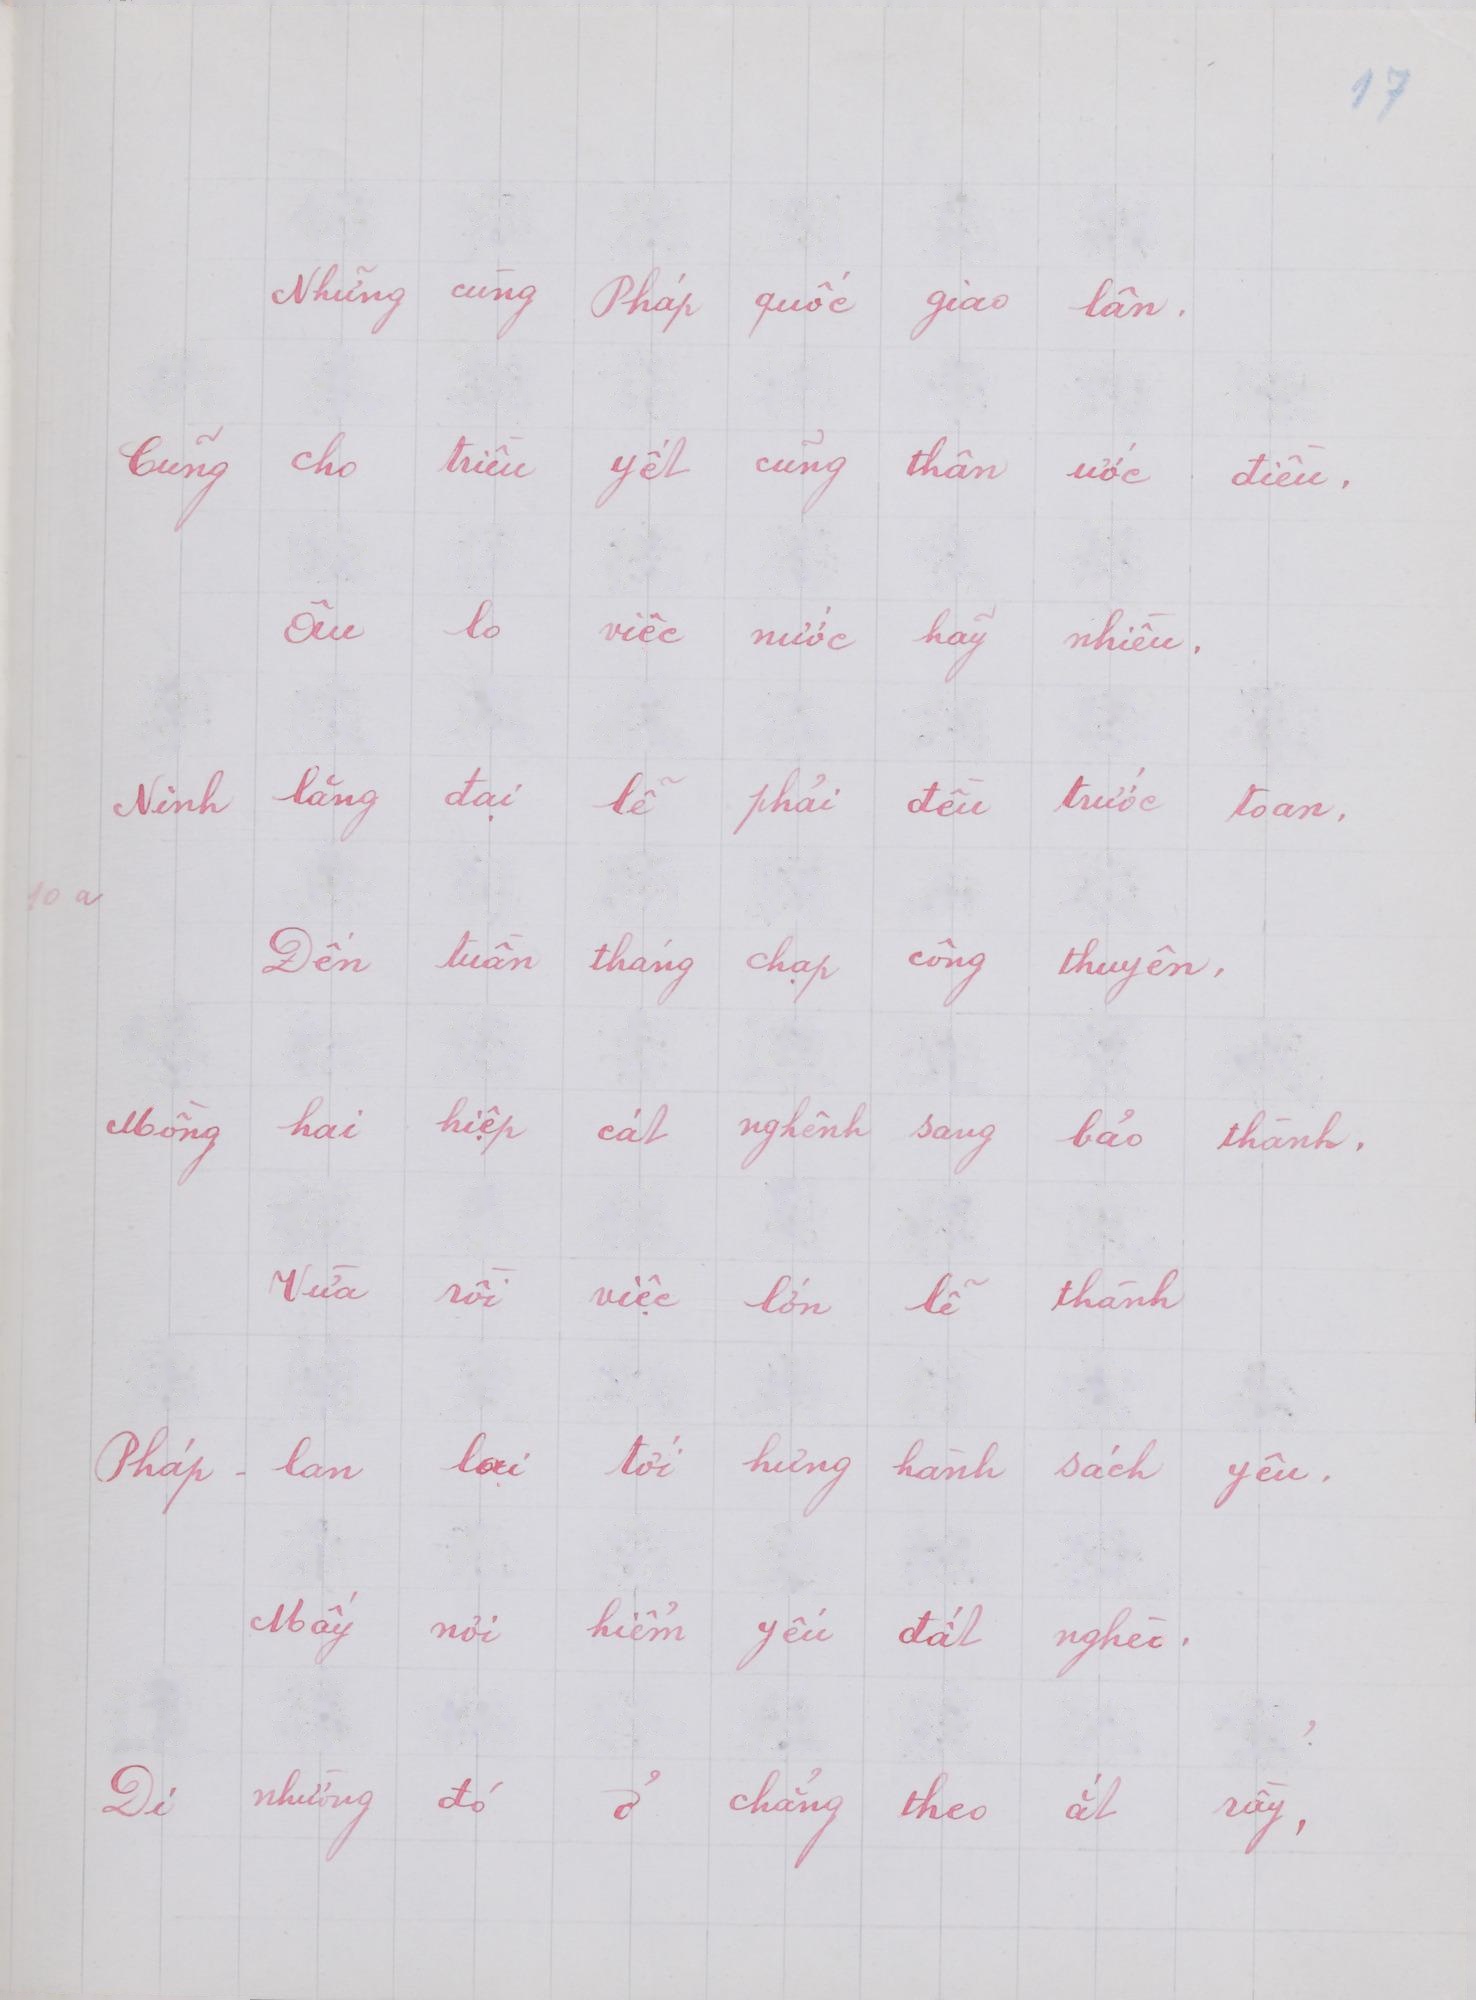 17
Những cùng Pháp quốc giao lân.
Cũng cho triều yết cùng thân ước điều.
Âu lo việc nước hãy nhiều.
Ninh lăng đại lễ phải đều trước toan.
10 a
Đến tuần tháng chạp công thuyên.
Mồng hai hiệp cát nghênh sang bảo thành.
Vừa rồi việc lớn lễ thành
Pháp - lan lại tới hưng hành sách yêu.
Mấy nơi hiểm yếu đất nghèo.
Di nhường đó ở chẳng theo ắt rầy,
?